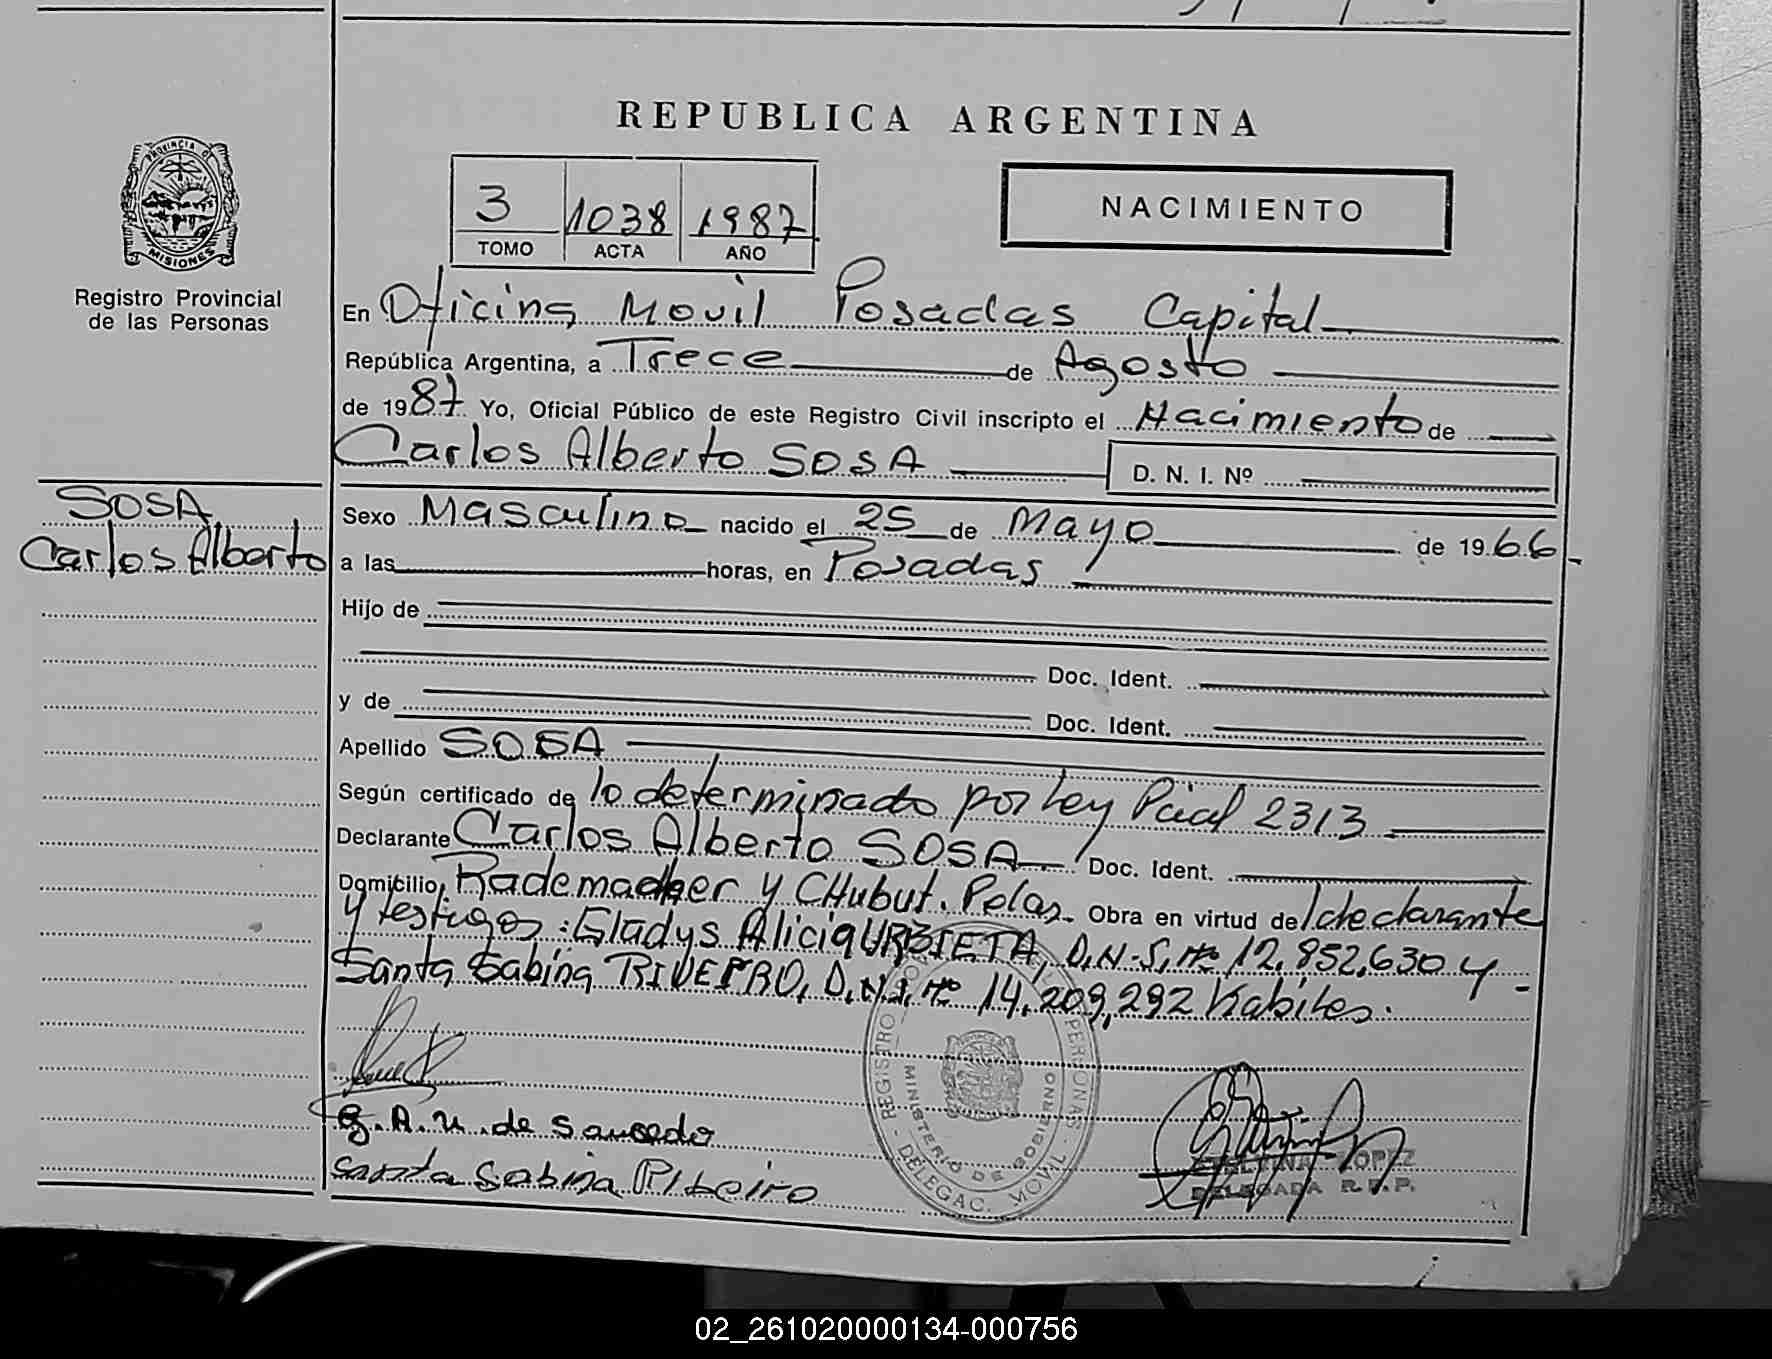 REPUBLICA ARGENTINA
PROVINCIA D
MISIONES
Registro Provincial
de las Personas
3 1038 1987
TOMO ACTA AÑO
NACIMIENTO
En Oficina Movil Posadas Capital
República Argentina, a Trece de Agosto
de 1987 Yo, Oficial Público de este Registro Civil inscripto el Nacimiento de
Carlos Alberto SOSA D. N. I. Nº
SOSA
Carlos Alberto
Sexo Masculino nacido el 25 de Mayo de 1966
a las horas, en Posadas
Hijo de
Doc. Ident.
y de Doc. Ident.
Apellido SOSA
Según certificado de lo determinado por Ley Pcial 2313
Declarante Carlos Alberto SOSA Doc. Ident.
Domicilio Rademacher y CHubut. Pdas. Obra en virtud del declarante
y testigos: Gladys Alicia URBIETA, D.N.I. Nº 12.852.630 y
Santa Sabina RIVEIRO, D.N.I. Nº 14.209.292 Habiles.
REGISTRO PERSONAS
MINISTERIO DE GOBIERNO
DELEGAC. MOVIL
G. A. U. de Saucedo
Santa Sabina Ribeiro
LOPEZ
DELEGADA R.P.P.
02_261020000134-000756